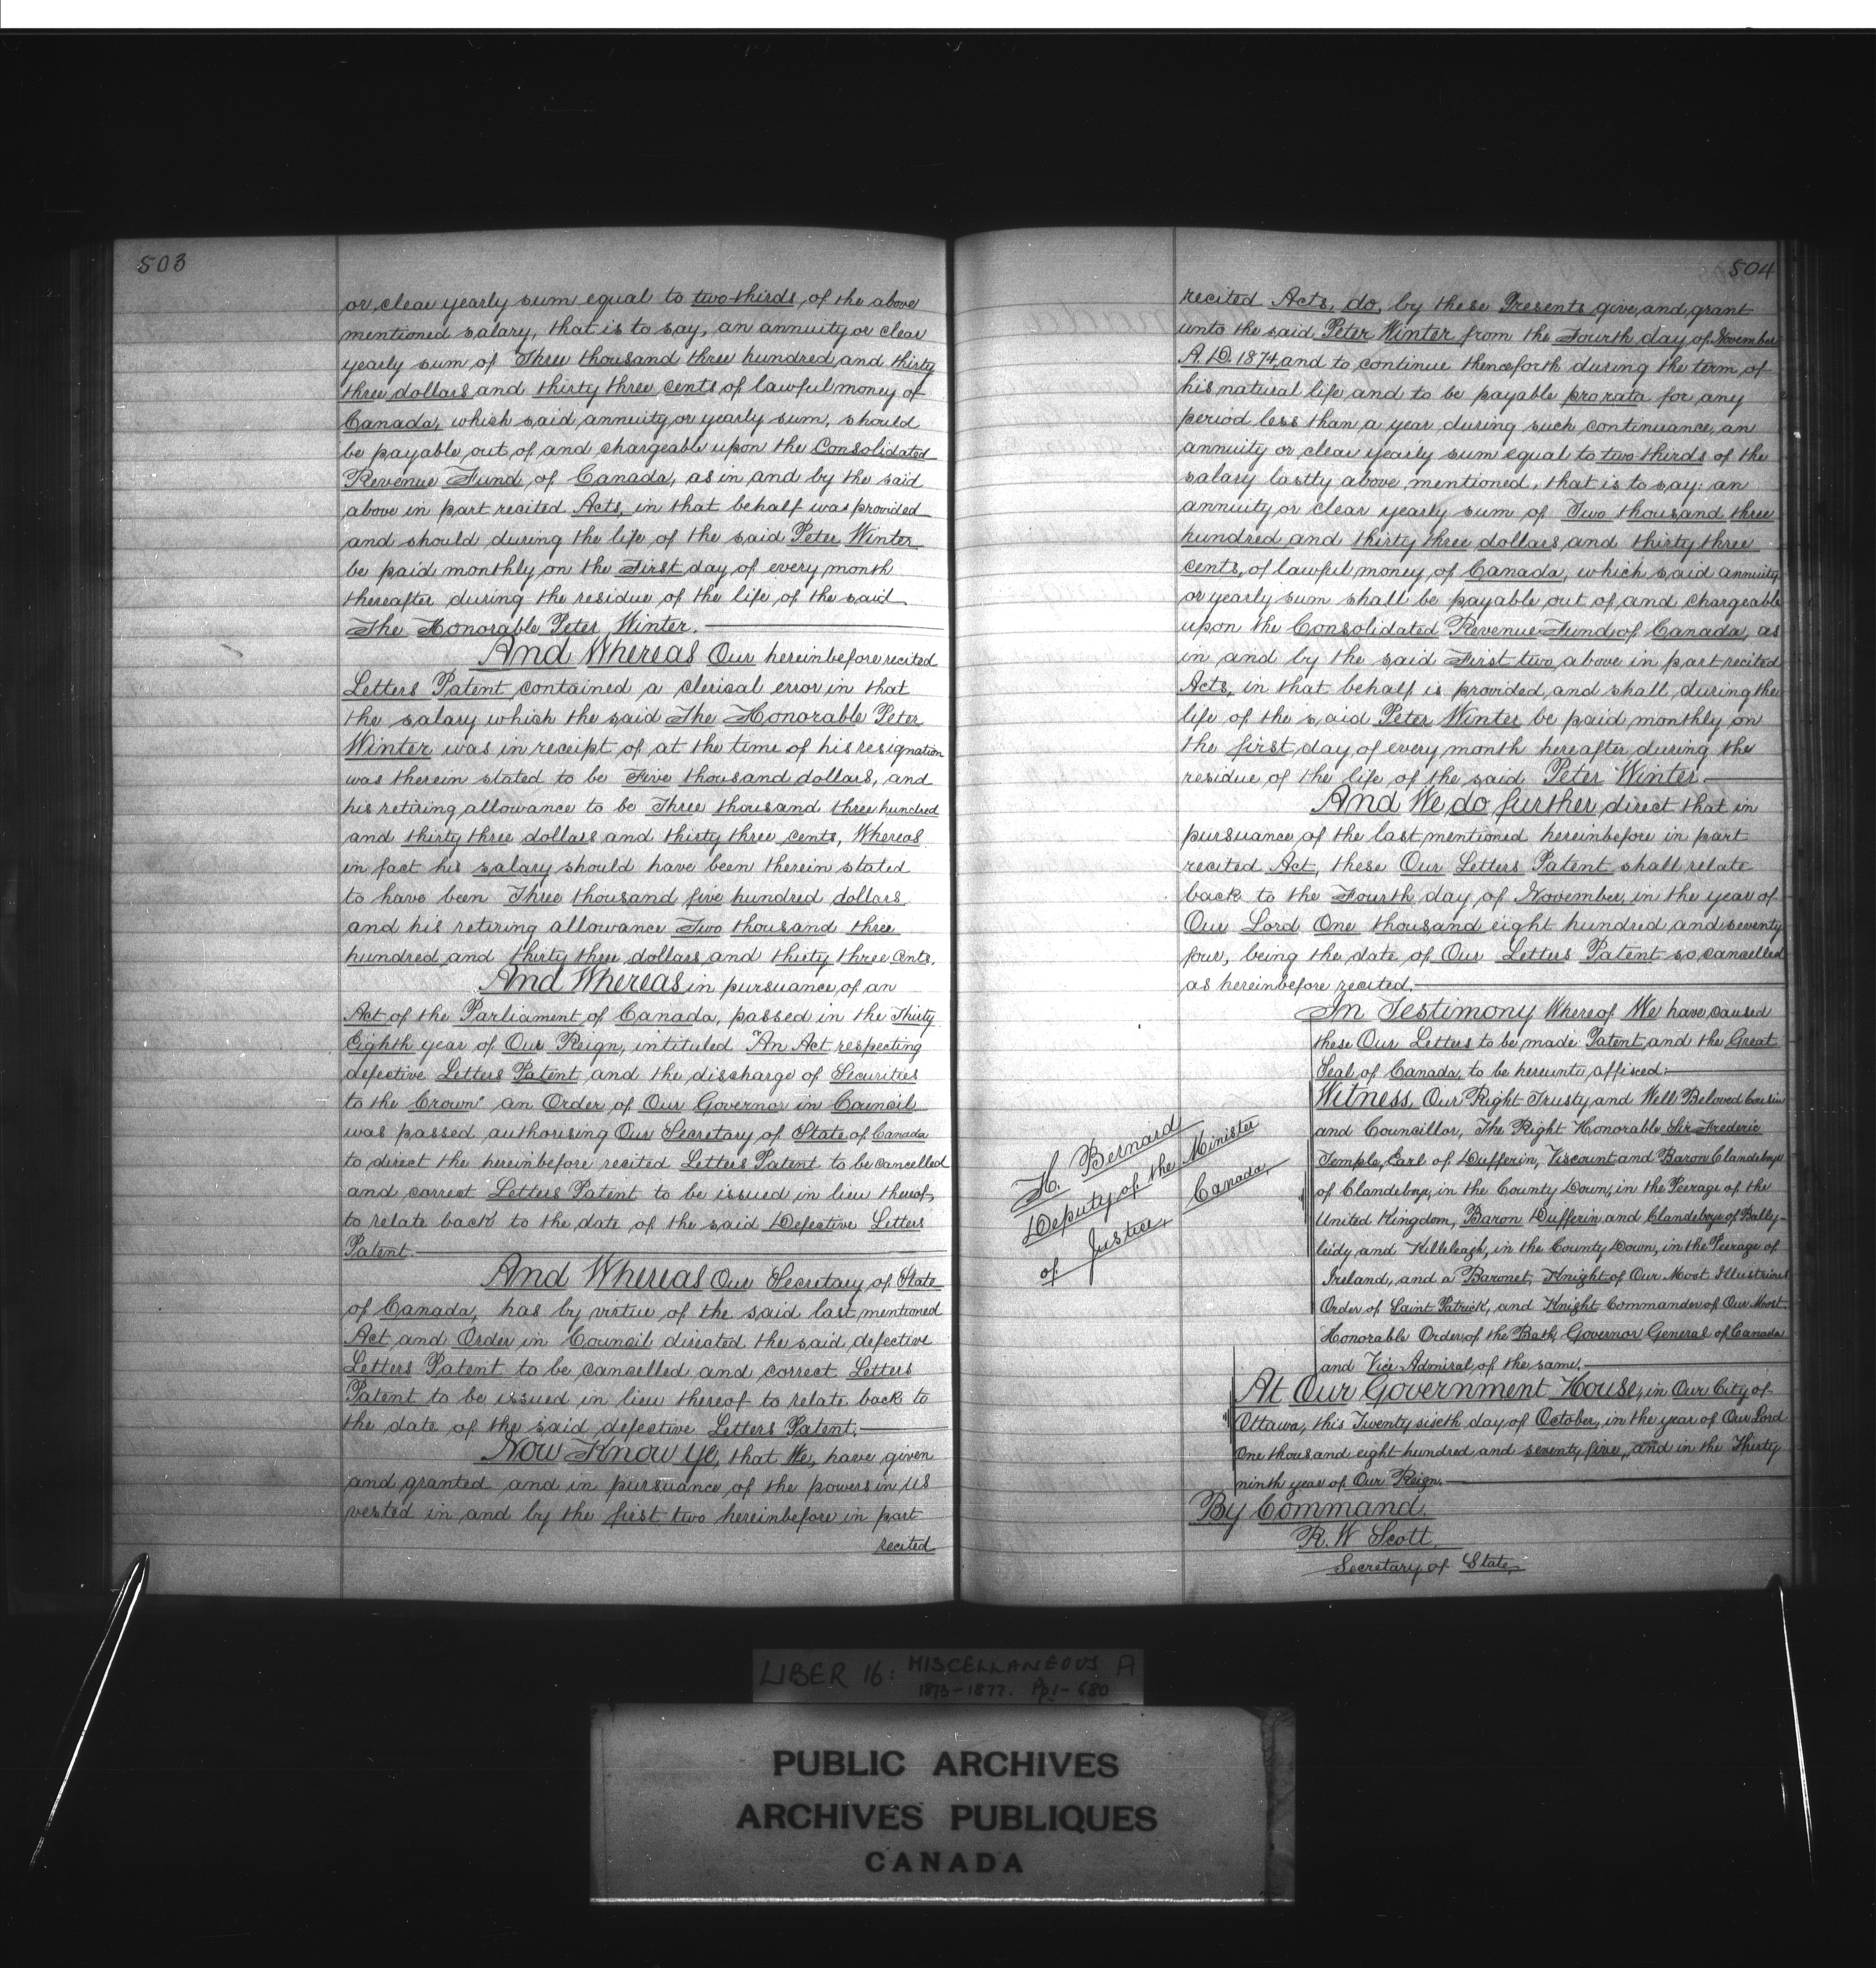 503
or clear yearly sum equal to two-thirds, of the above
mentioned salary, that is to say, an annuity or clear
yearly sum of Three thousand three hundred and thirty
three dollars and thirty three cents of lawful money of
Canada, which said annuity or yearly sum, should
be payable out of and chargeable upon the Consolidated
Revenue Fund of Canada, as in and by the said
above in part recited Acts, in that behalf was provided
and should during the life of the said Peter Winter
be paid monthly on the First day of every month
thereafter during the residue of the life of the said
The Honorable Peter Winter.
And Whereas Our hereinbefore recited
Letters Patent contained a clerical error in that
the salary which the said The Honorable Peter
Winter was in receipt of at the time of his resignation
was therein stated to be Five thousand dollars, and
his retiring allowance to be Three thousand three hundred
and thirty three dollars and thirty three cents, Whereas
in fact his salary should have been therein stated
to have been Three thousand five hundred dollars
and his retiring allowance Two thousand three
hundred and thirty three dollars and thirty three cnts.
And Whereas in pursuance of an
Act of the Parliament of Canada, passed in the Thirty
Eighth year of Our Reign, intituled "An Act respecting
defective Letters Patent and the discharge of Securities
to the Crown" an Order of Our Governor in Council
was passed authorising Our Secretary of State of Canada
to direct the hereinbefore recited Letters Patent to be cancelled
and correct Letters Patent to be issued in lieu thereof,
to relate back to the date of the said Defective Letters
Patent.
And Whereas Our Secretary of State
of Canada, has by virtue of the said last mentioned
Act and Order in Council directed the said defective
Letters Patent to be cancelled and correct Letters
Patent to be issued in lieu thereof to relate back to
the date of the said defective Letters Patent.
Now Know Ye, that We, have given
and granted and in pursuance of the powers in Us
vested in and by the first two hereinbefore in part
recited
504
recited Acts, do, by these Presents give and grant
unto the said Peter Winter from the Fourth day of November
A.D. 1874, and to continue thenceforth during the term of
his natural life and to be payable pro rata for any
period less than a year during such continuance, an
annuity or clear yearly sum equal to two thirds of the
salary lastly above mentioned, that is to say: an
annuity or clear yearly sum of Two thousand three
hundred and thirty three dollars and thirty three
cents, of lawful money of Canada, which said annuity
or yearly sum shall be payable out of and chargeable
upon the Consolidated Revenue Fund of Canada, as
in and by the said First two above in part recited
Acts, in that behalf is provided and shall, during the
life of the said Peter Winter be paid monthly on
the first day of every month hereafter during the
residue of the life of the said Peter Winter
And We do further direct that in
pursuance of the last mentioned hereinbefore in part
recited Act, these Our Letters Patent shall relate
back to the Fourth day of November, in the year of
Our Lord One thousand eight hundred and seventy
four, being the date of Our Letters Patent so cancelled
as hereinbefore recited.
In Testimony Whereof We have caused
these Our Letters to be made Patent, and the Great
Seal of Canada, to be hereunto affixed:
Witness, Our Right Trusty and Well Beloved Cousin
and Councillor, The Right Honorable Sir Frederic
Temple, Earl of Dufferin, Viscount and Baron Clandeboye
of Clandeboye, in the County Down, in the Peerage of the
United Kingdom, Baron Dufferin and Clandeboye of Bally-
leidy, and Killeleagh, in the County Down, in the Peerage of
Ireland, and a Baronet, Knight of Our Most Illustrious
Order of Saint Patrick, and Knight Commander of Our Most
Honorable Order of the Bath, Governor General of Canada
and Vice Admiral of the same.
At Our Government House, in Our City of
Ottawa, this Twenty sixth day of October, in the year of Our Lord
One thousand eight hundred and seventy five, and in the Thirty
ninth year of Our Reign.
By Command.
R. W Scott.
Secretary of State,
H. Bernard
Deputy of the Minister
of Justice, Canada,
LIBER 16: MISCELLANEOUS A
1873-1877. Pp 1-680
PUBLIC ARCHIVES
ARCHIVES PUBLIQUES
CANADA